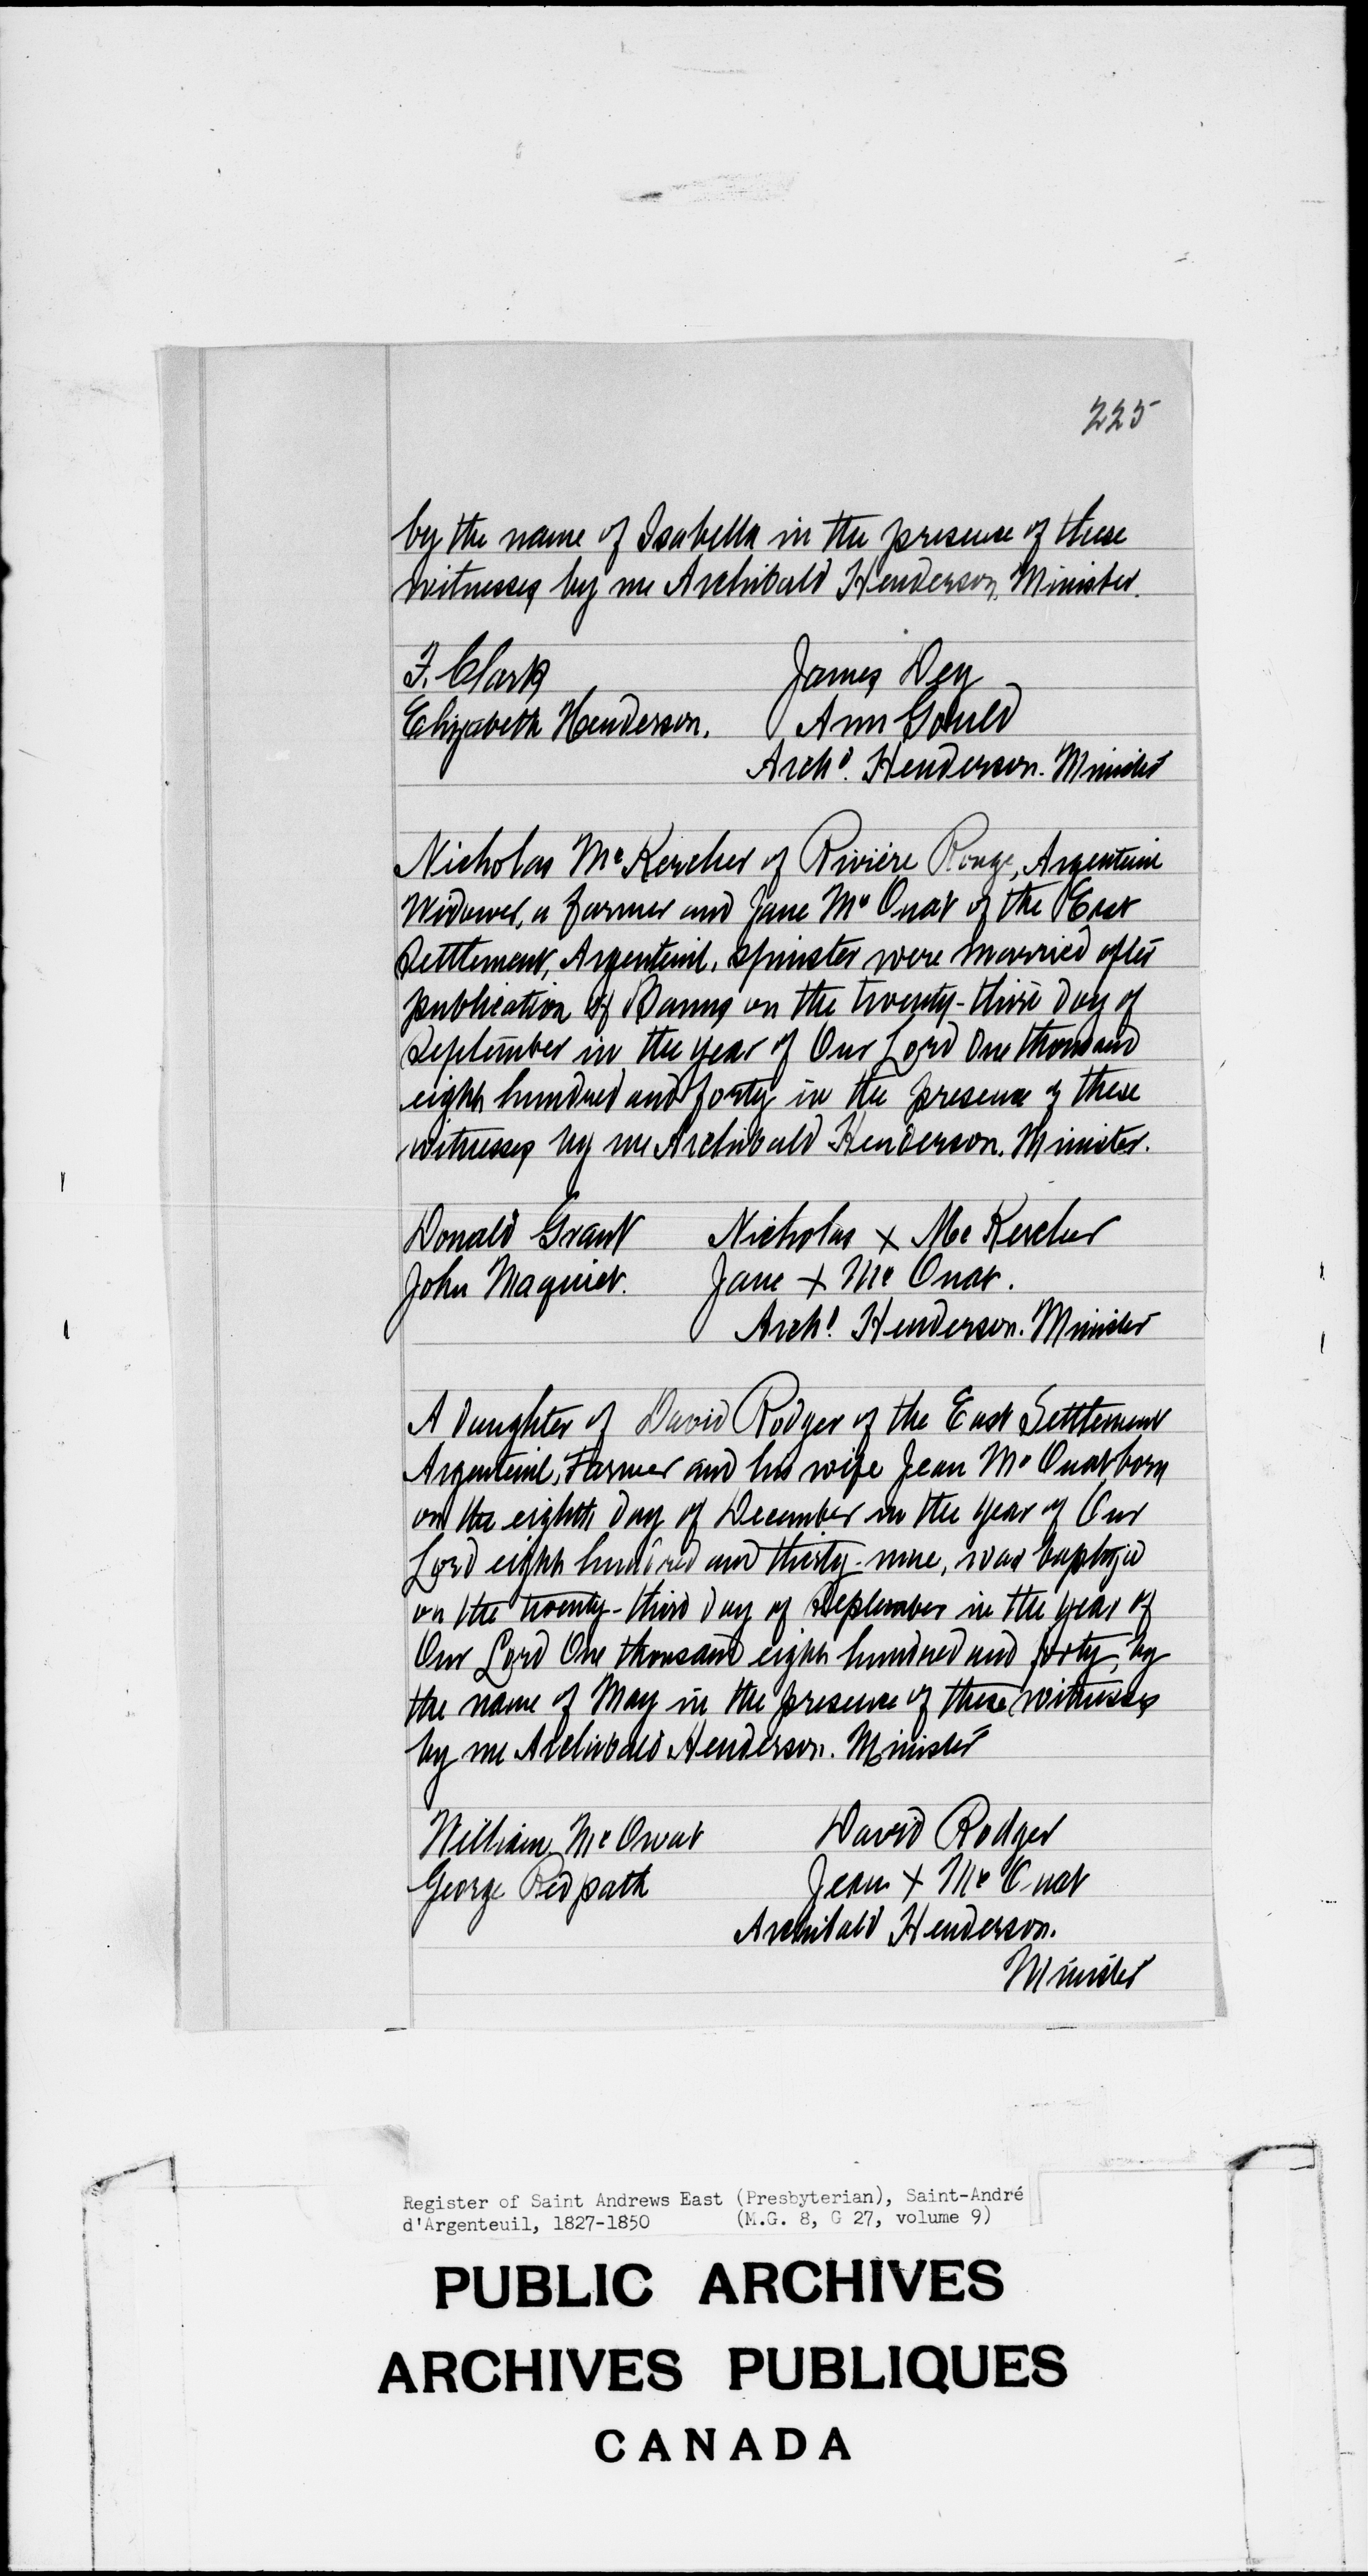 225
by the name of Isabella in the presence of these
witnesses by me Archibald Henderson, Minister.
F. Clark James Dey
Elizabeth Henderson. Ann Gould
Archd. Henderson. Minister
Nicholas Mc Kercher of Rivière Rouge, Argenteuil
Widower, a farmer and Jane Mc Ouat of the East
Settlement, Argenteuil, Spinster were married after
publication of Banns on the twenty-third day of
September in the year of Our Lord One thousand
eight hundred and forty in the presence of these
witnesses by me Archibald Henderson. Minister.
Donald Grant Nicholas + Mc Kercher
John Jane + Mc Ouat.
Archd. Henderson. Minister
A daughter of David Rodger of the East Settlement
Argenteuil, Farmer and his wife Jean Mc Ouat born
on the eighth day of December in the year of Our
Lord eight hundred and thirty-nine, was baptized
on the twenty-third day of September in the year of
Our Lord One thousand eight hundred and forty, by
the name of May in the presence of these witnesses
by me Archibald Henderson. Minister
William Mc Owat David Rodger
George Redpath Jean + Mc Ouat
Archibald Henderson.
Minister
Register of Saint Andrews East (Presbyterian), Saint-André
d'Argenteuil, 1827-1850 (M.G. 8, G 27, volume 9)
PUBLIC ARCHIVES
ARCHIVES PUBLIQUES
CANADA